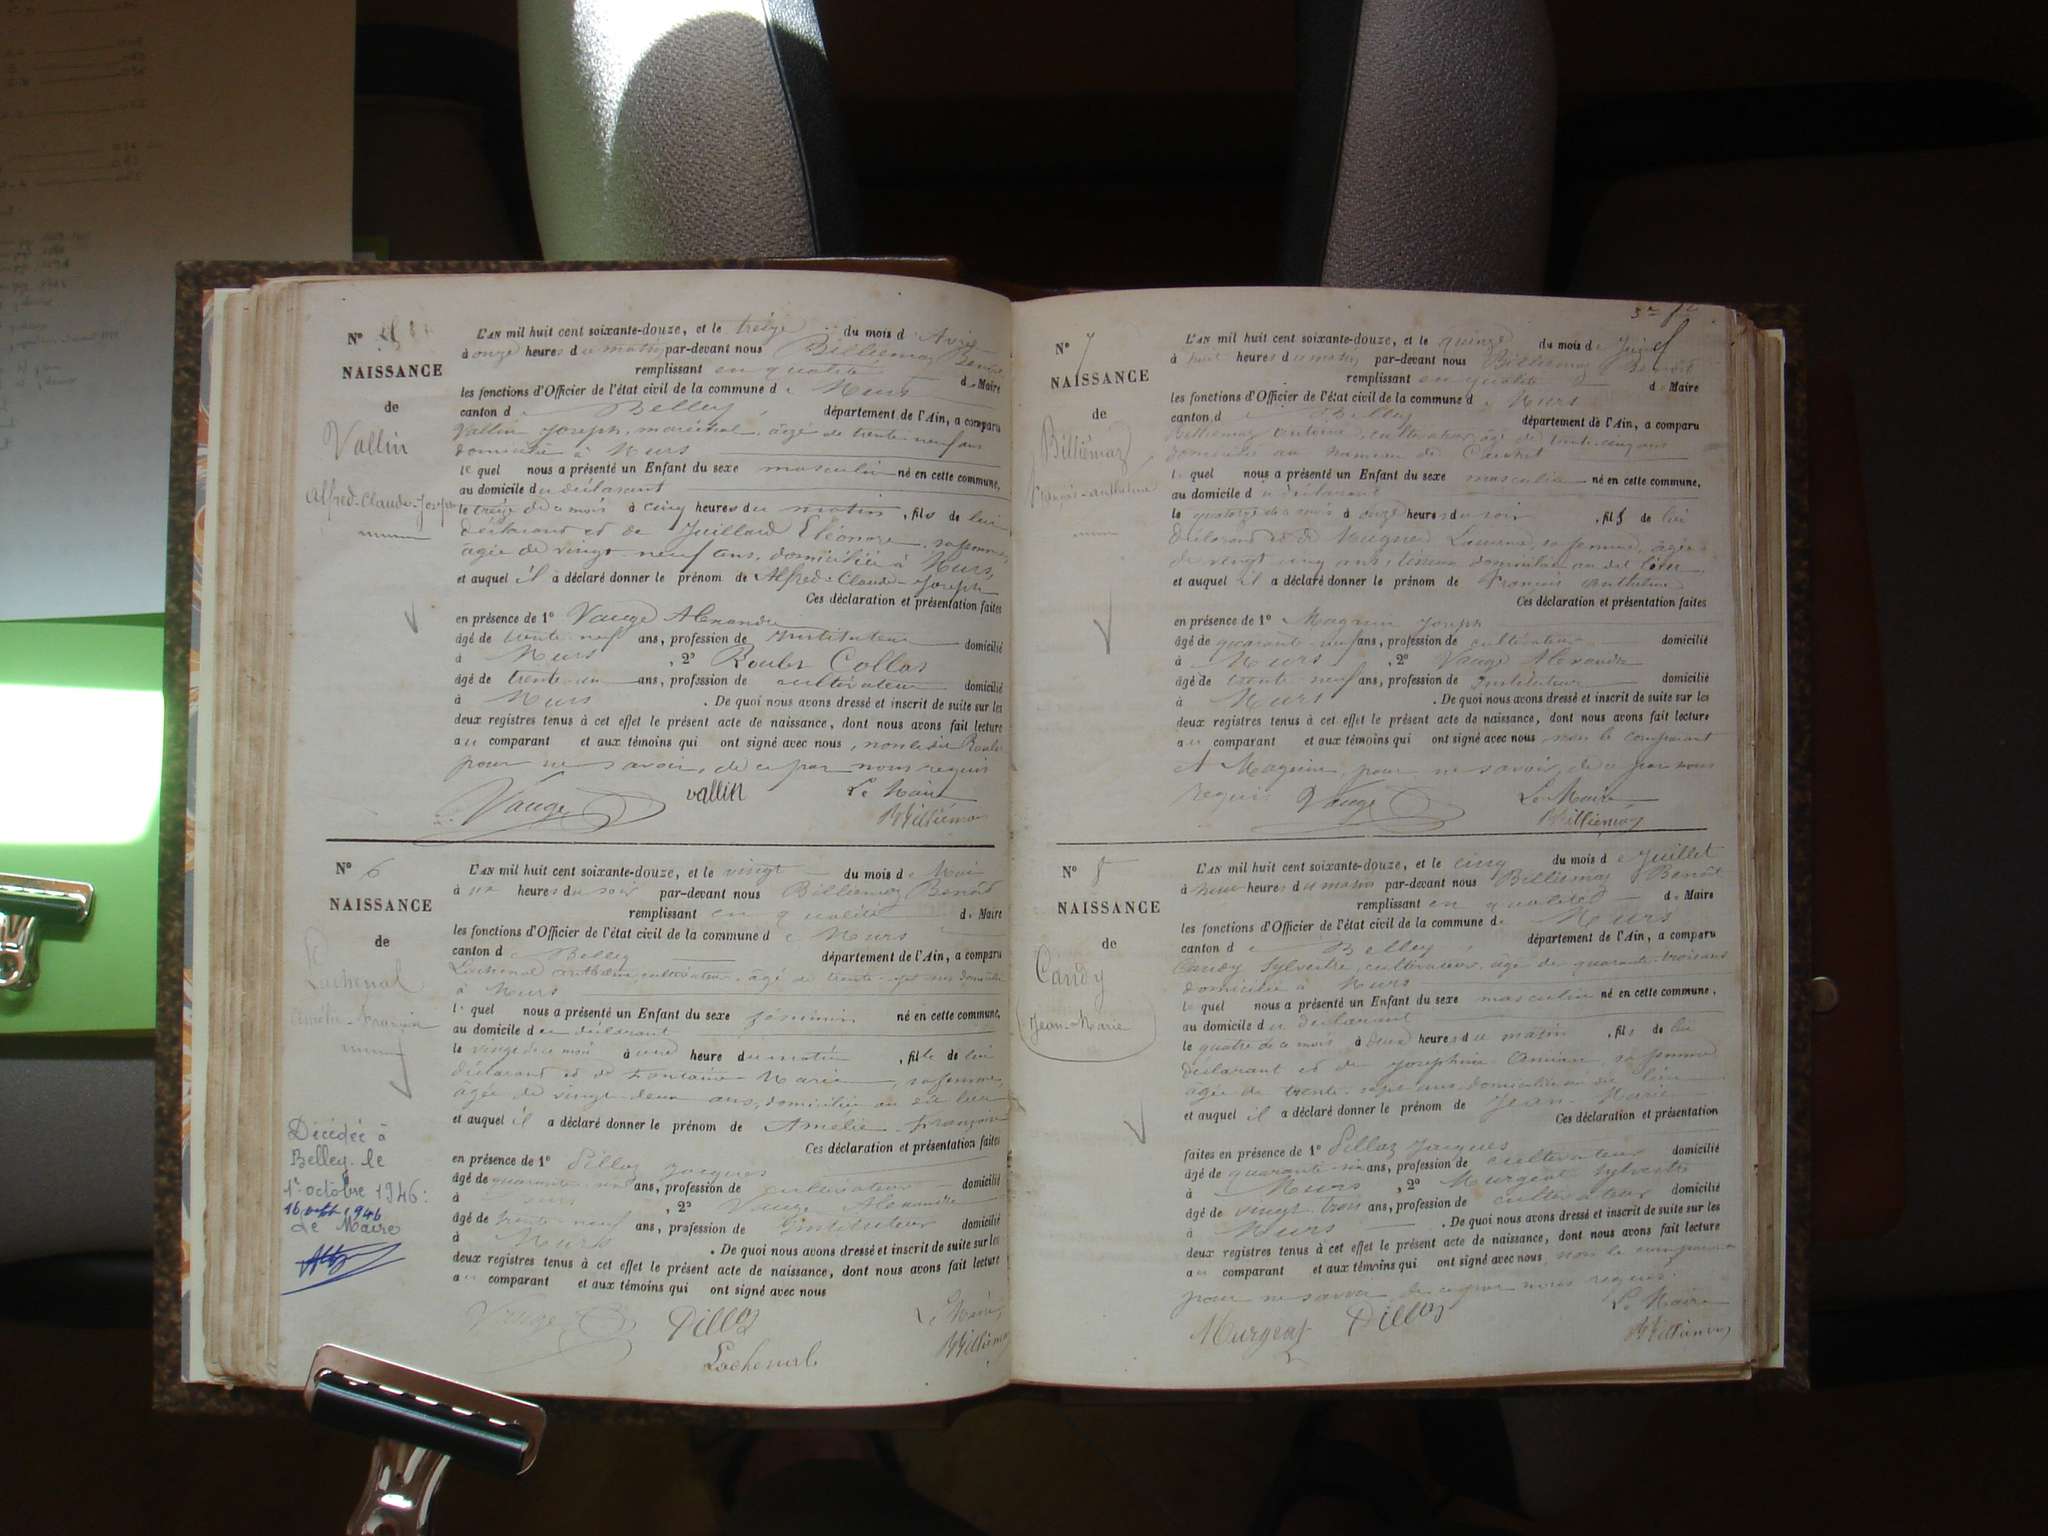 N°
NAISSANCE
de
Vallin
Alfred-Claude-Joseph
L'AN mil huit cent soixante-douze, et le treize du mois d'Avril
à onze heures du matin par-devant nous Billiemaz Benoit
remplissant en qualité de Maire
les fonctions d'Officier de l'état civil de la commune de Murs
canton de Belley, département de l'Ain, a comparu
Vallin Joseph, maréchal, âgé de trente neuf ans
domicilié à Murs
lequel nous a présenté un Enfant du sexe masculin né en cette commune,
au domicile du déclarant
le treize de ce mois à cinq heures du matin, fils de lui
déclarant et de Juillard Eléonore, sa femme,
âgée de vingt neuf ans, domiciliée à Murs,
et auquel il a déclaré donner le prénom de Alfred-Claude-Joseph
Ces déclaration et présentation faites
en présence de 1° Vauge Alexandre
âgé de trente neuf ans, profession de Instituteur domicilié
à Murs, 2° Roules Collas
âgé de trente ans, profession de cultivateur domicilié
à Murs. De quoi nous avons dressé et inscrit de suite sur les
deux registres tenus à cet effet le présent acte de naissance, dont nous avons fait lecture
au comparant et aux témoins qui ont signé avec nous, non le dit Roules
pour ne savoir, de ce par nous requis
Vauge vallin Le Maire
Billiémaz
N° 6
NAISSANCE
de
Lachenal
Amélie-Françoise
Décédée à
Belley le
1er octobre 1946:
16 octb 1946
Le Maire
L'AN mil huit cent soixante-douze, et le vingt du mois de Mai
à heures du soir par-devant nous Billiemaz Benoit
remplissant en qualité de Maire
les fonctions d'Officier de l'état civil de la commune de Murs
canton de Belley département de l'Ain, a comparu
Lachenal Anthelme, cultivateur, âgé de trente-sept ans domicilié
à Murs
lequel nous a présenté un Enfant du sexe féminin né en cette commune,
au domicile du déclarant
le vingt de ce mois à une heure du matin, fille de lui
déclarant et de Fontaine Marie, sa femme,
âgée de vingt-deux ans, domiciliée au dit lieu
et auquel il a déclaré donner le prénom de Amélie Françoise
Ces déclaration et présentation faites
en présence de 1° Pilloz Jacques
âgé de quarante-six ans, profession de cultivateur domicilié
à Murs, 2° Vauge Alexandre
âgé de trente-neuf ans, profession de Instituteur domicilié
à Murs. De quoi nous avons dressé et inscrit de suite sur les
deux registres tenus à cet effet le présent acte de naissance, dont nous avons fait lecture
au comparant et aux témoins qui ont signé avec nous
Vauge Pilloz Le Maire
Lachenal Billiémaz
N° 7
NAISSANCE
de
Billiémaz
François-Anthelme
L'AN mil huit cent soixante-douze, et le quinze du mois de Juin
à huit heures du matin par-devant nous Billiemaz Benoit
remplissant en qualité de Maire
les fonctions d'Officier de l'état civil de la commune de Murs
canton de Belley département de l'Ain, a comparu
Billiemaz Antoine, cultivateur, âgé de trente-cinq ans
domicilié au hameau de
lequel nous a présenté un Enfant du sexe masculin né en cette commune,
au domicile du déclarant
le quatorze de ce mois à onze heures du soir, fils de lui
déclarant et de sa femme, âgée
de vingt cinq ans, domiciliée au dit lieu,
et auquel il a déclaré donner le prénom de François Anthelme
Ces déclaration et présentation faites
en présence de 1° Magnin Joseph
âgé de quarante-neuf ans, profession de cultivateur domicilié
à Murs, 2° Vauge Alexandre
âgé de trente neuf ans, profession de Instituteur domicilié
à Murs. De quoi nous avons dressé et inscrit de suite sur les
deux registres tenus à cet effet le présent acte de naissance, dont nous avons fait lecture
au comparant et aux témoins qui ont signé avec nous, non le comparant
et Magnin, pour ne savoir, de ce par nous
requis Vauge Le Maire
Billiémaz
N° 8
NAISSANCE
de
Caridy
Jean-Marie
L'AN mil huit cent soixante-douze, et le cinq du mois de Juillet
à heures du matin par-devant nous Billiemaz Benoit
remplissant en qualité de Maire
les fonctions d'Officier de l'état civil de la commune de Murs
canton de Belley, département de l'Ain, a comparu
Caridy Sylvestre, cultivateur, âgé de quarante-trois ans
domicilié à Murs
lequel nous a présenté un Enfant du sexe masculin né en cette commune,
au domicile du déclarant
le quatre de ce mois à deux heures du matin, fils de lui
déclarant et de Josephine sa femme
âgée de trente-sept ans, domiciliée au dit lieu
et auquel il a déclaré donner le prénom de Jean-Marie
Ces déclaration et présentation
faites en présence de 1° Pilloz Jacques
âgé de quarante-six ans, profession de cultivateur domicilié
à Murs, 2° Murgeat Sylvestre
âgé de vingt trois ans, profession de cultivateur domicilié
à Murs. De quoi nous avons dressé et inscrit de suite sur les
deux registres tenus à cet effet le présent acte de naissance, dont nous avons fait lecture
au comparant et aux témoins qui ont signé avec nous non le comparant
pour ne savoir, de ce par nous requis.
Murgeat Pilloz Le Maire
Billiémaz